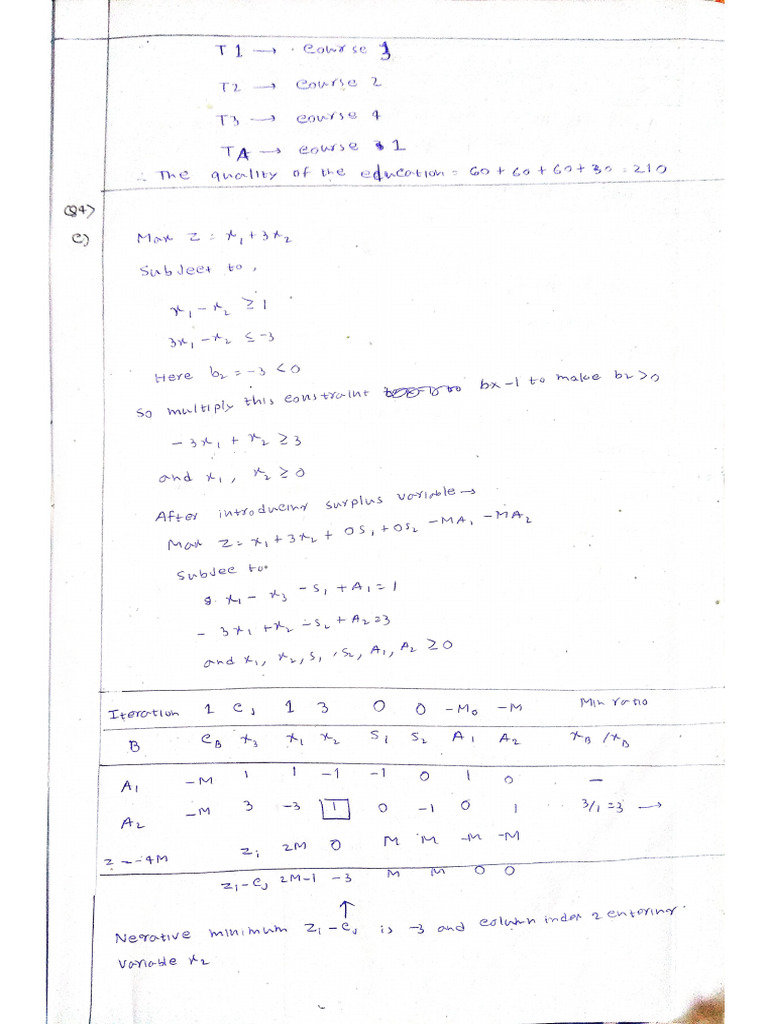 T1 → course 3
T2 → course 2
T3 → course 4
TA → course 1
∴ The quality of the education = 60 + 60 + 60 + 30 = 210
Q4)
c)
Max Z = x₁ + 3x₂
Subject to,
x₁ - x₂ ≥ 1
3x₁ - x₂ ≤ -3
Here b₂ = -3 < 0
So multiply this constraint bx -1 to make b₂ > 0
- 3x₁ + x₂ ≥ 3
and x₁, x₂ ≥ 0
After introducing surplus variable →
Max Z = x₁ + 3x₂ + 0S₁ + 0S₂ - MA₁ - MA₂
Subjec to
x₁ - x₃ - S₁ + A₁ = 1
- 3x₁ + x₂ - S₂ + A₂ = 3
and x₁, x₂, S₁, S₂, A₁, A₂ ≥ 0
Iteration 1 Cⱼ 1 3 0 0 -M₀ -M Min ratio
B C_B x₃ x₁ x₂ S₁ S₂ A₁ A₂ x_B / x_B
A₁ -M 1 1 -1 -1 0 1 0 —
A₂ -M 3 -3 1 0 -1 0 1 3/1 = 3 →
Z = -4M Zⱼ 2M 0 M M -M -M
Zⱼ - Cⱼ 2M-1 -3 M M 0 0
↑
Negative minimum Zⱼ - Cⱼ is -3 and column index 2 entering
variable x₂